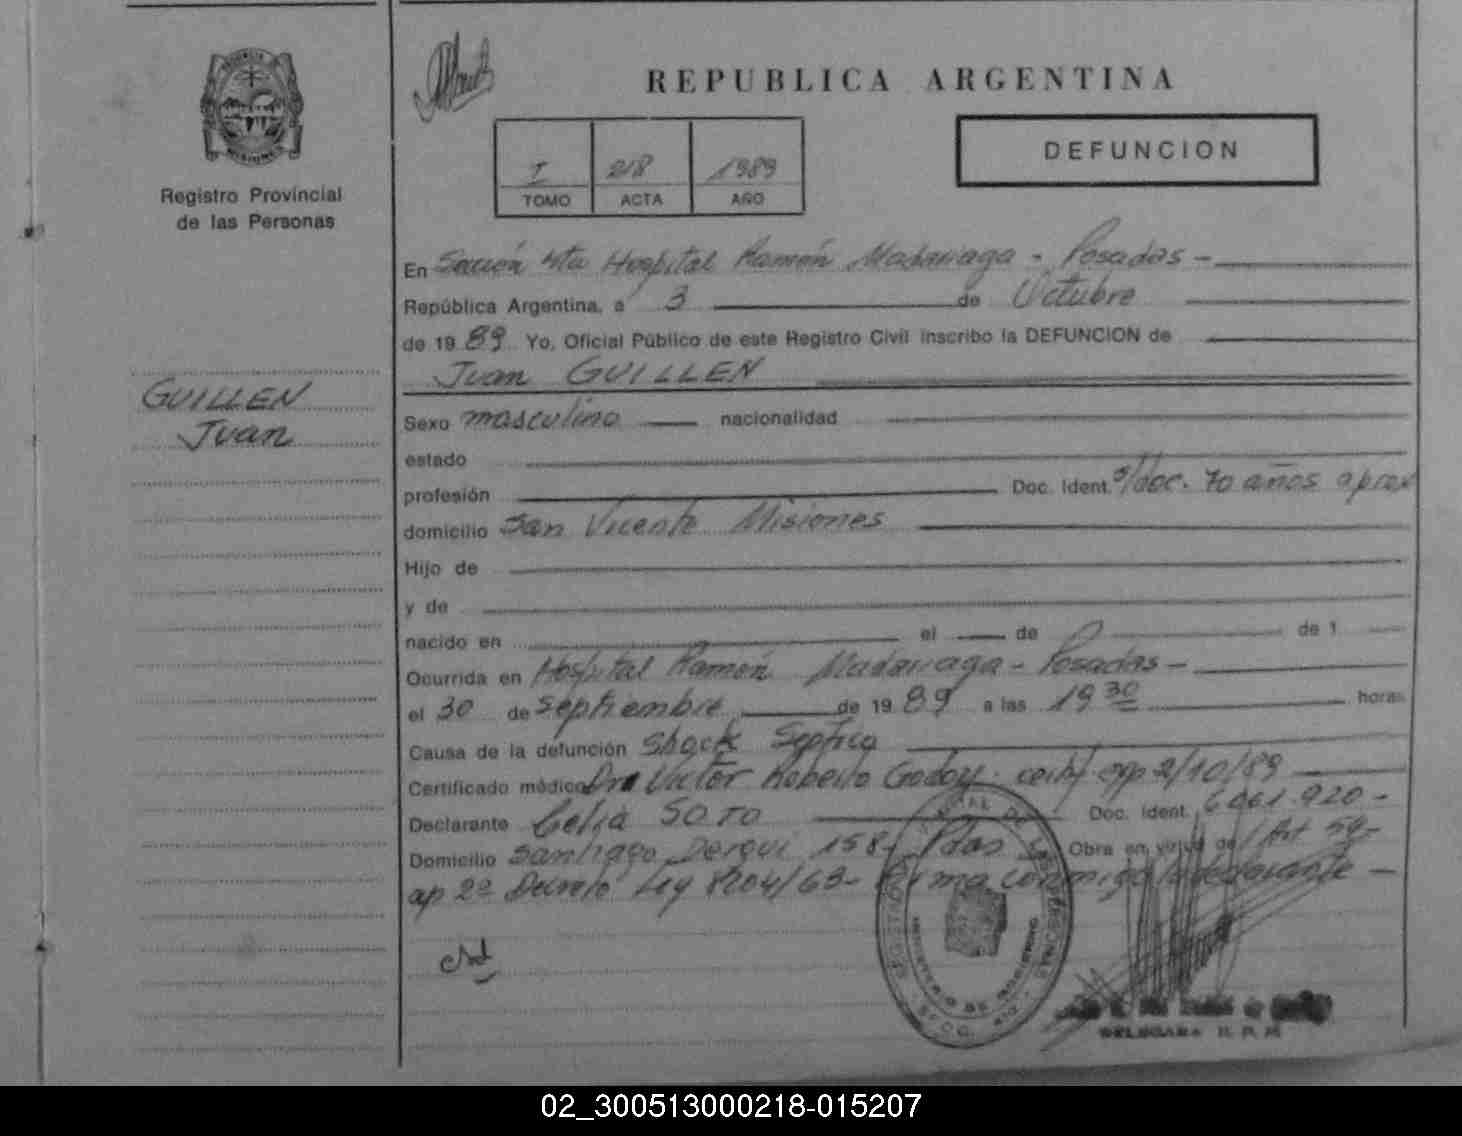 REPUBLICA ARGENTINA
DEFUNCION
I 218 1989
TOMO ACTA AÑO
Registro Provincial
de las Personas
GUILLEN
Juan
En Sección 4ta Hospital Ramón Madariaga - Posadas -
República Argentina, a 3 de Octubre
de 1989 Yo, Oficial Público de este Registro Civil inscribo la DEFUNCION de
Juan GUILLEN
Sexo masculino nacionalidad
estado
profesión Doc. Ident. s/doc. 70 años aprox
domicilio San Vicente Misiones
Hijo de
y de
nacido en el de de 1
Ocurrida en Hospital Ramón Madariaga - Posadas -
el 30 de Septiembre de 1989 a las 19 30 horas
Causa de la defunción Shock Septico
Certificado médico Dr. Victor Roberto Godoy. certif. exp 2/10/89
Declarante Celia SOTO Doc. Ident. 6061.920 -
Domicilio Santiago Derqui 158 - Pdas Obra en virtud de Art 59-
ap 2º Decreto Ley 8204/63 - Firma conmigo declarante -
REGISTRO PROVINCIAL DE LAS PERSONAS
MINISTERIO DE GOBIERNO
DELEGADA R. P. P.
02_300513000218-015207